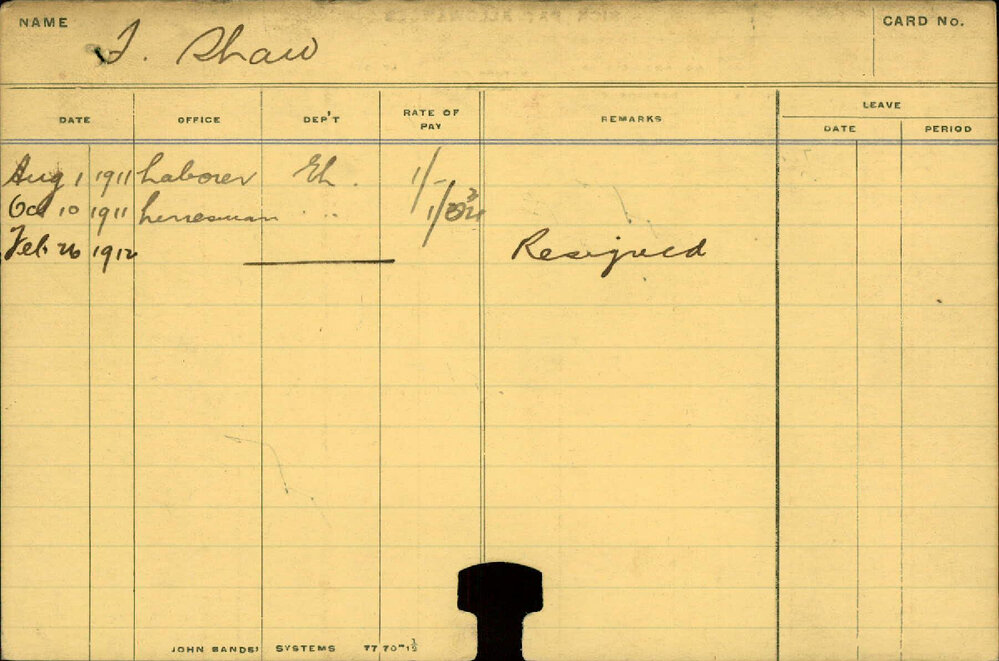 NAME CARD No.
J. Shaw
LEAVE
DATE OFFICE DEP'T RATE OF PAY REMARKS DATE PERIOD
Aug 1 1911 Laborer Eh. 1/-
Oct 10 1911 Linesman " 1/
Feb 26 1912 Resigned
JOHN SANDS' SYSTEMS 7770